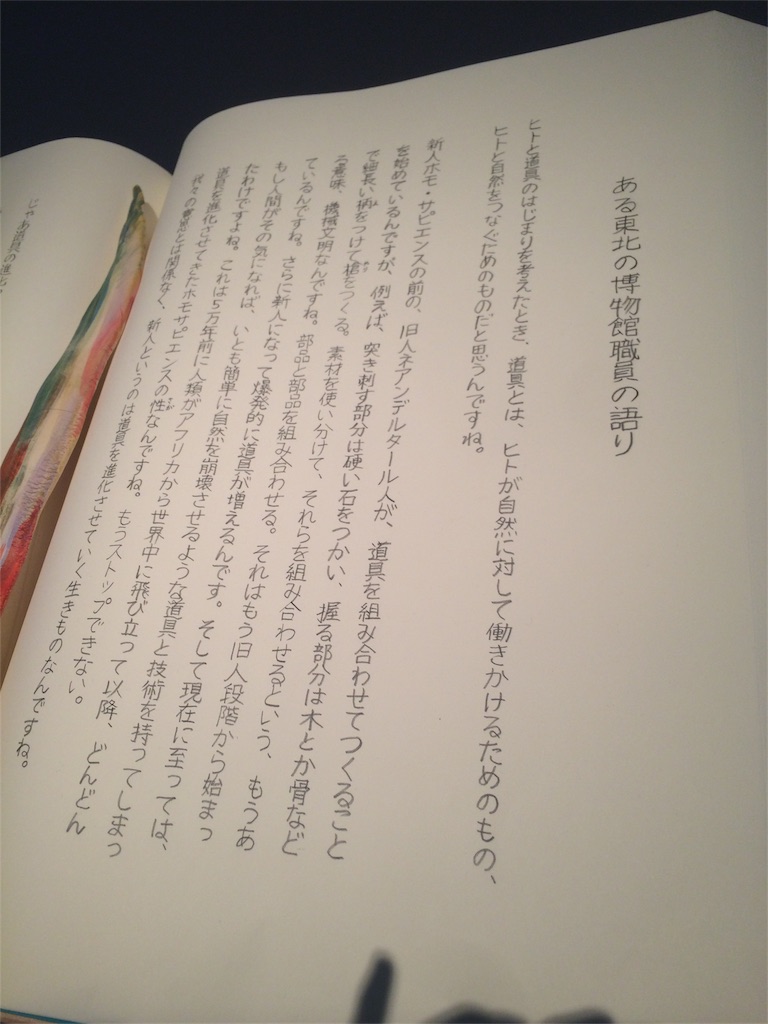 ある東北の博物館職員の語り
ヒトと道具のはじまりを考えたとき、道具とは、ヒトが自然に対して働きかけるためのもの、
ヒトと自然をつなぐためのものだと思うんですね。
新人ホモ・サピエンスの前の、旧人ネアンデルタール人が、道具を組み合わせてつくること
を始めているんですが、例えば、突き刺す部分は硬い石をつかい、握る部分は木とか骨など
で細長い柄をつけて槍をつくる。素材を使い分けて、それらを組み合わせるという、もうあ
る意味、機械文明なんですね。部品と部品を組み合わせる。それはもう旧人段階から始まっ
ているんですね。さらに新人になって爆発的に道具が増えるんです。そして現在に至っては、
もし人間がその気になれば、いとも簡単に自然を崩壊させるような道具と技術を持ってしまっ
たわけですよね。これは5万年前に人類がアフリカから世界中に飛び立って以降、どんどん
道具を進化させてきたホモサピエンスの性なんですね。もうストップできない。
我々の意思とは関係なく、新人というのは道具を進化させていく生きものなんですね。
じゃあ道具の進化